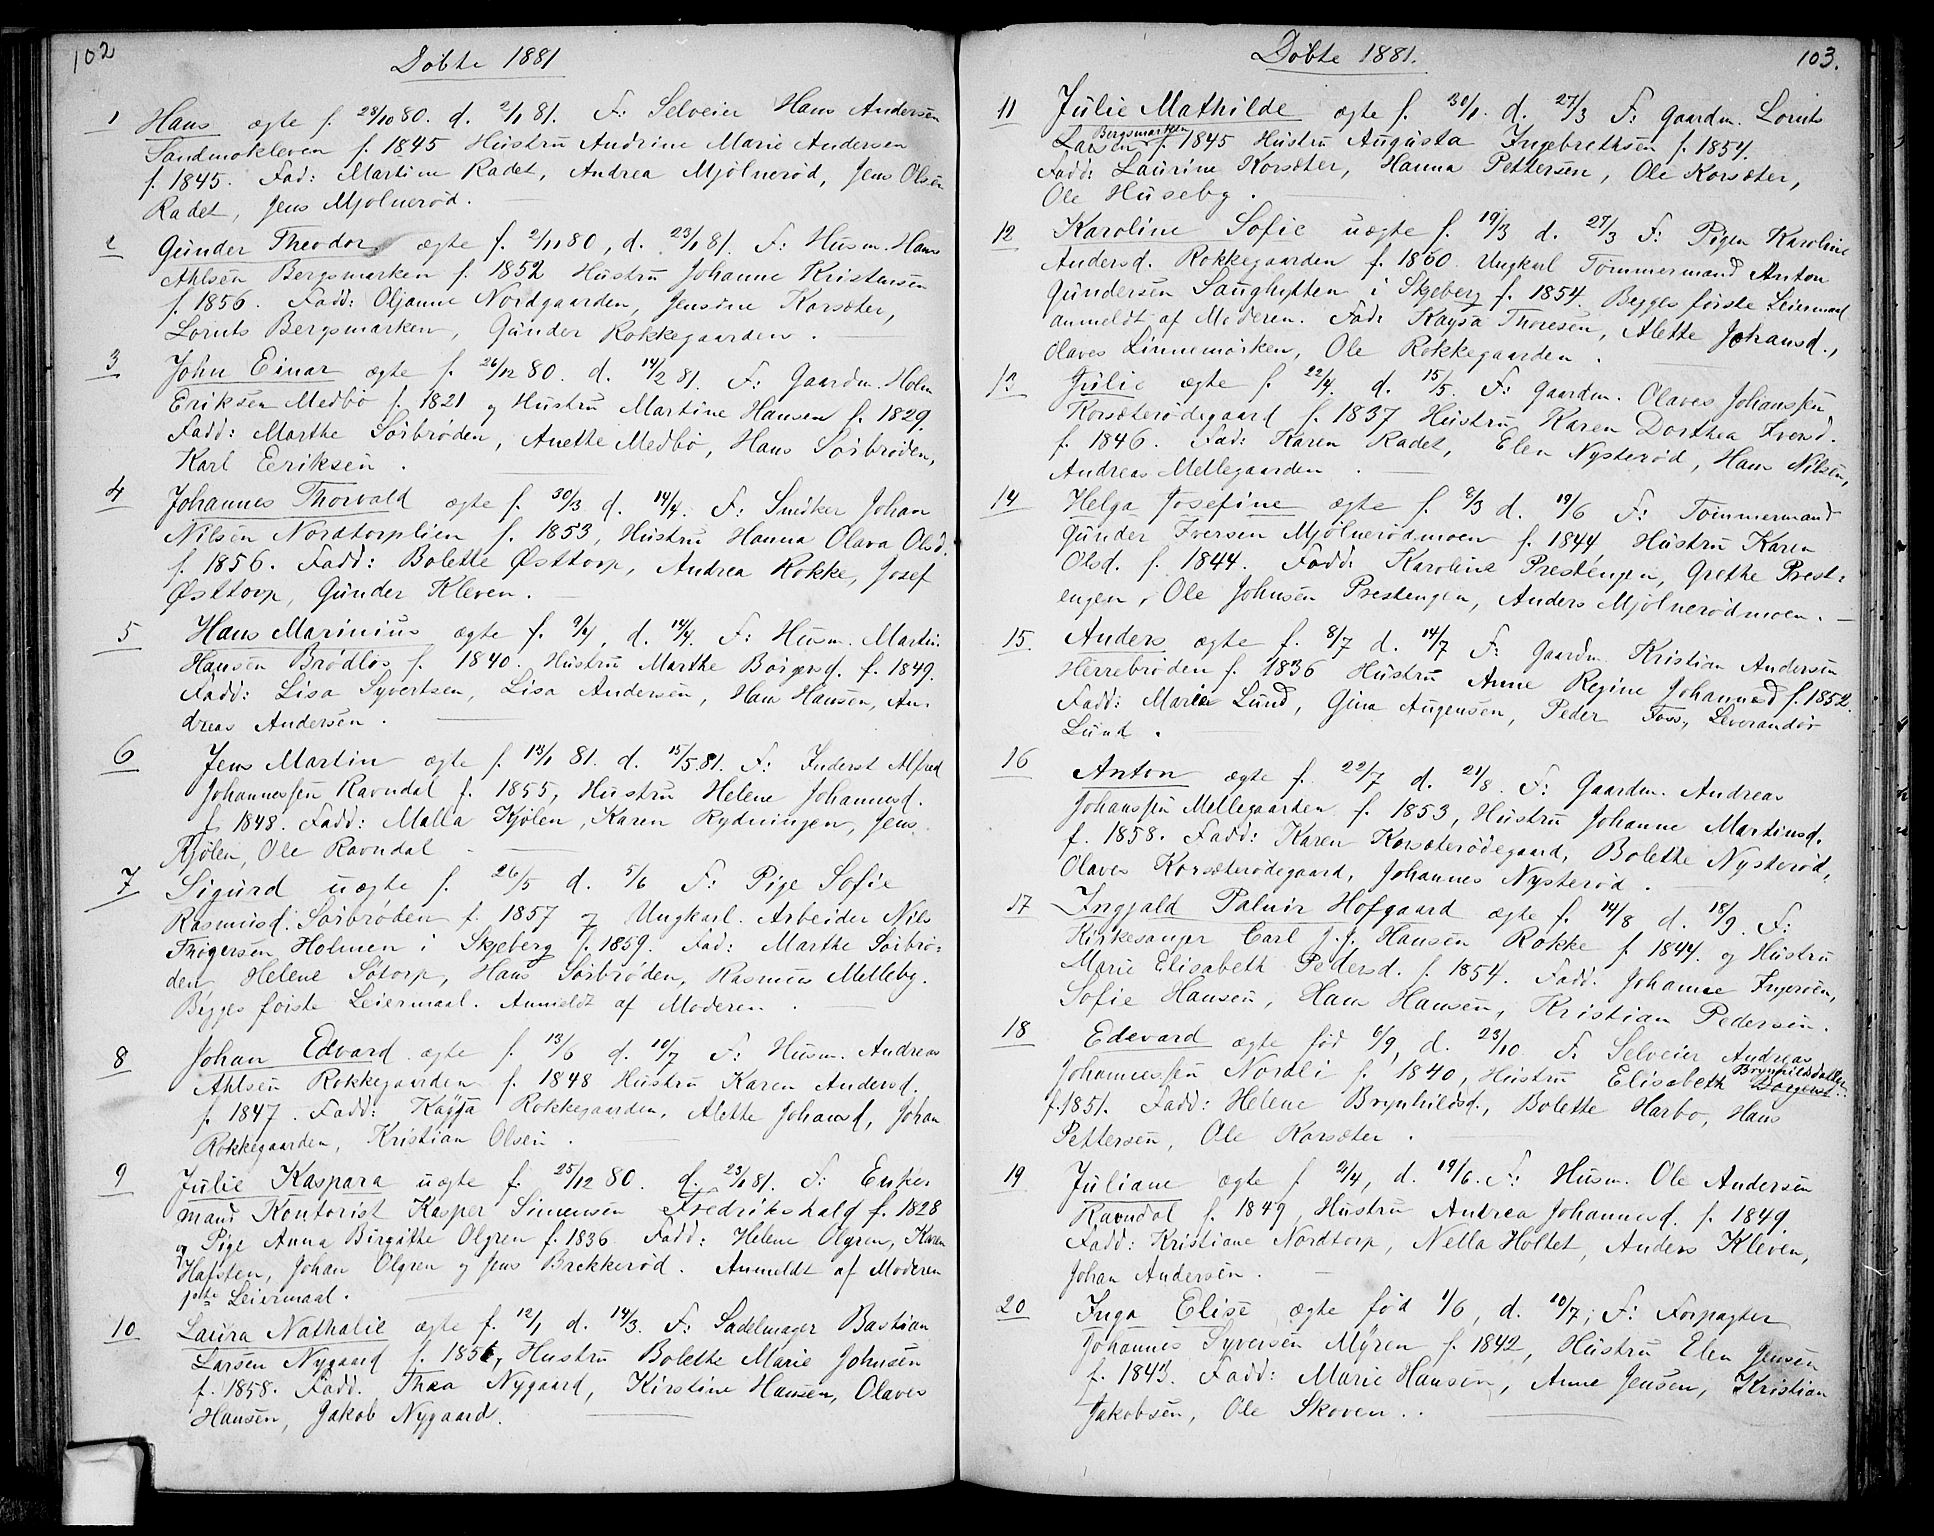 102
Döbte 1881
1 Hans ægte f. 28/10 80. d. 2/1 81. F: Selveier Hans Andersen
Sandmokleven f. 1845 Hustru Andrine Marie Andersen
f. 1845. Fad: Martine Radet, Andrea Mjölnerød, Jens Olsen
Radet, Jens Mjolnerød.
2 Gunder Theodor ægte f. 2/11 80, d. 23/1 81. F: Husm. Hans
Ahlsen Bergsmarken f. 1852 Hustru Johanne Kristensen
f. 1856. Fadd: Oljanne Nordgaarden, Jensine Korsæter,
Lornts Bergsmarken, Gunder Rokkegaarden.
3 John Einar ægte f. 26/12 80. d. 14/2 81. F: Gaardm. Holm
Eriksen Medbö f. 1821 og Hustru Martine Hansen f. 1829.
Fadd: Marthe Soibrøden, Anette Medbø, Hans Soibrøden,
Karl Eeriksen.
4 Johannes Thorvald ægte f. 30/3 d. 14/4. F: Snedker Johan
Nilsen Nordtorplien f. 1853, Hustru Hanna Olava Olsd.
f. 1856. Fadd: Bolette Østtorp, Andrea Rokke, Josef
Østtorp, Gunder Kleven.
5 Hans Marinius ægte f. 9/4, d. 14/4. F: Husm. Martin
Hansen Brødløs f. 1840. Hustru Marthe Börgersd. f. 1849.
Fadd: Lisa Syvertsen, Lisa Andersen, Hans Hansen, An-
dreas Andersen.
6 Jens Martin ægte f. 13/1 81. d. 15/5 81. F: Inderst Alfred
Johannessen Ravndal f. 1855, Hustru Helene Johannesd.
f. 1848. Fadd: Malla Kjölen, Karen Rydningen, Jens
Kjölen, Ole Ravndal
7 Sigurd uægte f. 26/5 d. 5/6 F: Pige Sofie
Rasmusd. Soibrøden f. 1857 og Ungkarl. Arbeider Nils
Thøgersen Holmen i Skjeberg f. 1859. Fad: Marthe Soibrø-
den, Helene Sötorp, Hans Soibrøden, Rasmus Melleby.
Begges förste Leiermaal. Anmeldt af Moderen.
8 Johan Edvard ægte f. 13/6 d. 10/7 F: Husm. Andreas
Ahlsen Rokkegaarden f. 1848 Hustru Karen Andersd.
f. 1847. Fadd: Kaysa Rokkegaarden, Alette Johansd, Johan
Rokkegaarden, Kristian Olsen.
9 Julie Kaspara uægte f. 25/12 80. d. 23/1 81. F: Enke-
mand Kontorist Kasper Simensen Fredrikshald f. 1828
og Pige Anna Birgitte Olgren f. 1836. Fadd: Helene Olgren, Karen
Hafsten, Johan Olgren og Jens Brekkerød. Anmeldt af Moderen
1ste Leiermaal.
10 Laura Nathalie ægte f. 12/1 d. 14/3. F: Sadelmager Bastian
Larsen Nygaard f. 1851, Hustru Bolette Marie Johnsen
f. 1858. Fadd. Thea Nygaard, Kirstine Hansen, Olaves
Hansen, Jakob Nygaard.
103.
Döbte 1881.
11 Julie Mathilde ægte f. 30/1. d. 27/3 F: Gaardm. Lornts
Larsen Bergsmarken f. 1845 Hustru Augusta Ingebrethsen f. 1854.
Fadd: Laurine Korsæter, Hanna Pettersen, Ole Korsæter,
Ole Huseby.
12 Karoline Sofie uægte f. 19/3 d. 27/3 F: Pigen Karoline
Andersd. Rokkegaarden f. 1860. Ungkarl Tømmermand Anton
Gundersen Saughytten i Skjeberg f. 1854. Begges förste Leiermaal
anmeldt af Moderen. Fad: Kaysa Thoresen, Alette Johansd.,
Olaves Linnemörken, Ole Rokkegaarden.
13 Julie ægte f. 22/4. d. 15/5. F: Gaardm. Olaves Johanssen
Korsæterödegaard f. 1837 Hustru Karen Dorthea Iversd.
f. 1846. Fad: Karen Radet, Elen Nysterød, Hans Nilsen,
Andreas Mellegaarden.
14 Helga Josefine ægte f. 8/3 d. 19/6 F: Tømmermand
Gunder Iversen Mjölnerødmoen f. 1844, Hustru Karen
Olsd. f. 1844. Fadd: Karoline Prestengen, Grethe Prest-
engen, Ole Johnsen Prestengen, Anders Mjölnerødmoen.
15. Anders ægte f. 8/7 d. 14/7 F: Gaardm. Kristian Andersen
Herrebrøden f. 1836 Hustru Anne Regine Johannesd f. 1852.
Fadd: Marie Lund, Gina Augensen, Peder Foss, Leverandør
Lund.
16 Anton ægte f. 22/7 d. 21/8. F: Gaardm. Andreas
Johanssen Mellegaarden f. 1853, Hustru Johanne Martinsd.
f. 1858. Fadd: Karen Korsæterødegaard, Bolette Nysterød,
Olaves Korsæterødegaard, Johannes Nysterød.
17 Ingjald Palnir Hofgaard ægte f. 14/8 d. 18/9. F:
Kirkesanger Carl J. J. Hansen Rokke f. 1844. og Hustru
Marie Elisabeth Pedersd. f. 1854. Fadd. Johanne Ingerøen,
Sofie Hansen, Hans Hansen, Kristian Pedersen.
18 Edevard ægte föd 6/9, d. 23/10. F. Selveier Andreas
Johannessen Nordli f. 1840, Hustru Elisabeth Brynhildsdatter
f. 1851. Fadd: Helene Brynhildsd., Bolette Harbo, Hans
Pettersen, Ole Korsæter.
19 Juliane ægte f. 2/4, d. 19/6. F: Husm. Ole Andersen
Ravndal f. 1849, Hustru Andrea Johannesd. f. 1849.
Fadd: Kristiane Nordtorp, Nella Holtet, Anders Kleven,
Johan Andersen.
20 Inga Elise ægte föd 1/6, d. 10/7; F: Forpagter
Johannes Syversen Myren f. 1842, Hustru Elen Jensen
f. 1843. Fadd: Marie Hansen, Anne Jensen, Kristian
Jakobsen, Ole Skoven.